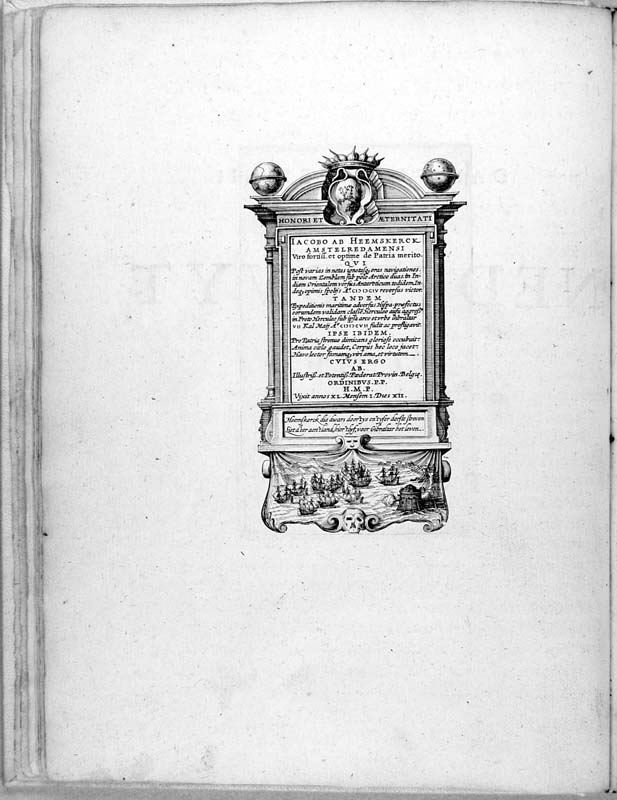 HONORI ET ÆTERNITATI
IACOBO AB HEEMSKERCK
AMSTELREDAMENSI
Viro fortiss. et optime de Patria merito.
QVI
Post varias in notas ignotasq, oras navigationes,
in novam Zemblam sub polo Arctico duas, in In-
diam Orientalem versus Antarcticum totidem, In-
deq, opimis spoliis Aº. CIƆ IƆCIV reversus victor
TANDEM
Expeditionis maritimæ adversus Hisp. præfectus
eorumdem validam classē Herculeo ausu aggress9
in Freto Herculeo sub ipsa arce et urbe Gibraltar
VII Kal. Maij Aº CIƆ IƆCVII fudit ac profligavit.
IPSE IBIDEM.
Pro Patria strenue dimicans gloriose occubuit:
Anima cælo gaudet, Corpus hoc loco jacet:
Have lector famamq, viri ama, et virtutem.
CVIVS ERGO
AB.
Illustriss. et Potentiss. Fœderat. Provin. Belgiæ.
ORDINIBVS. P.P.
H.M.P.
Vixit annos XL. Mensem I. Dies XII.
Heemskerck die dwars door t'ys en t'yser dorste streven
Liet d'eer aen t'land, hier t'lyf, voor Gibraltar het leven.